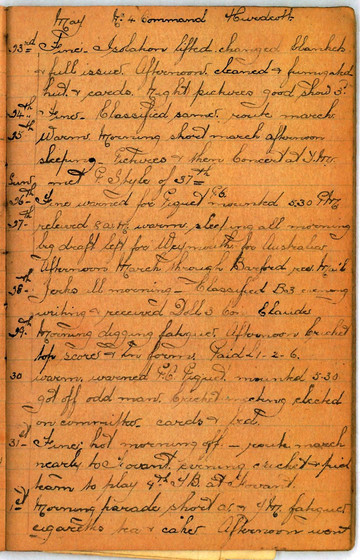 May No 4 Command Hurdcott
23rd Fine. Isolation lifted, changed blankets
& full issue. Afternoon cleaned & fumigated
hut & cards. Night pictures good show 3d
24th Fine. Classified same. route march
25th Warm Morning short march afternoon
sleeping – Pictures & then Concert at Y.M.
Sun. met G Style of 37th
26th Fine warned for Piquet mounted 5.30 PM
27th relieved 8 AM warm sleeping all morning
big draft left for Weymouth for Australia
Afternoon March through Barford rec. mail
28th Jerks ill morning – Classified B.3 evening
writing & received Doll 3 Con Claude
29th Morning digging fatigue. Afternoon Cricket
top score & in form. Paid £1-2-6.
30 warm, warned Piquet mounted 5-30
got off odd man. Cricket meeting elected
on committee cards &
31st Fine; hot morning off. – route march
nearly to Fovant. evening cricket & pick
team to play 4th T.B. at Fovant.
1st Morning parade short & fatigue
cigarettes tea & cake Afternoon went